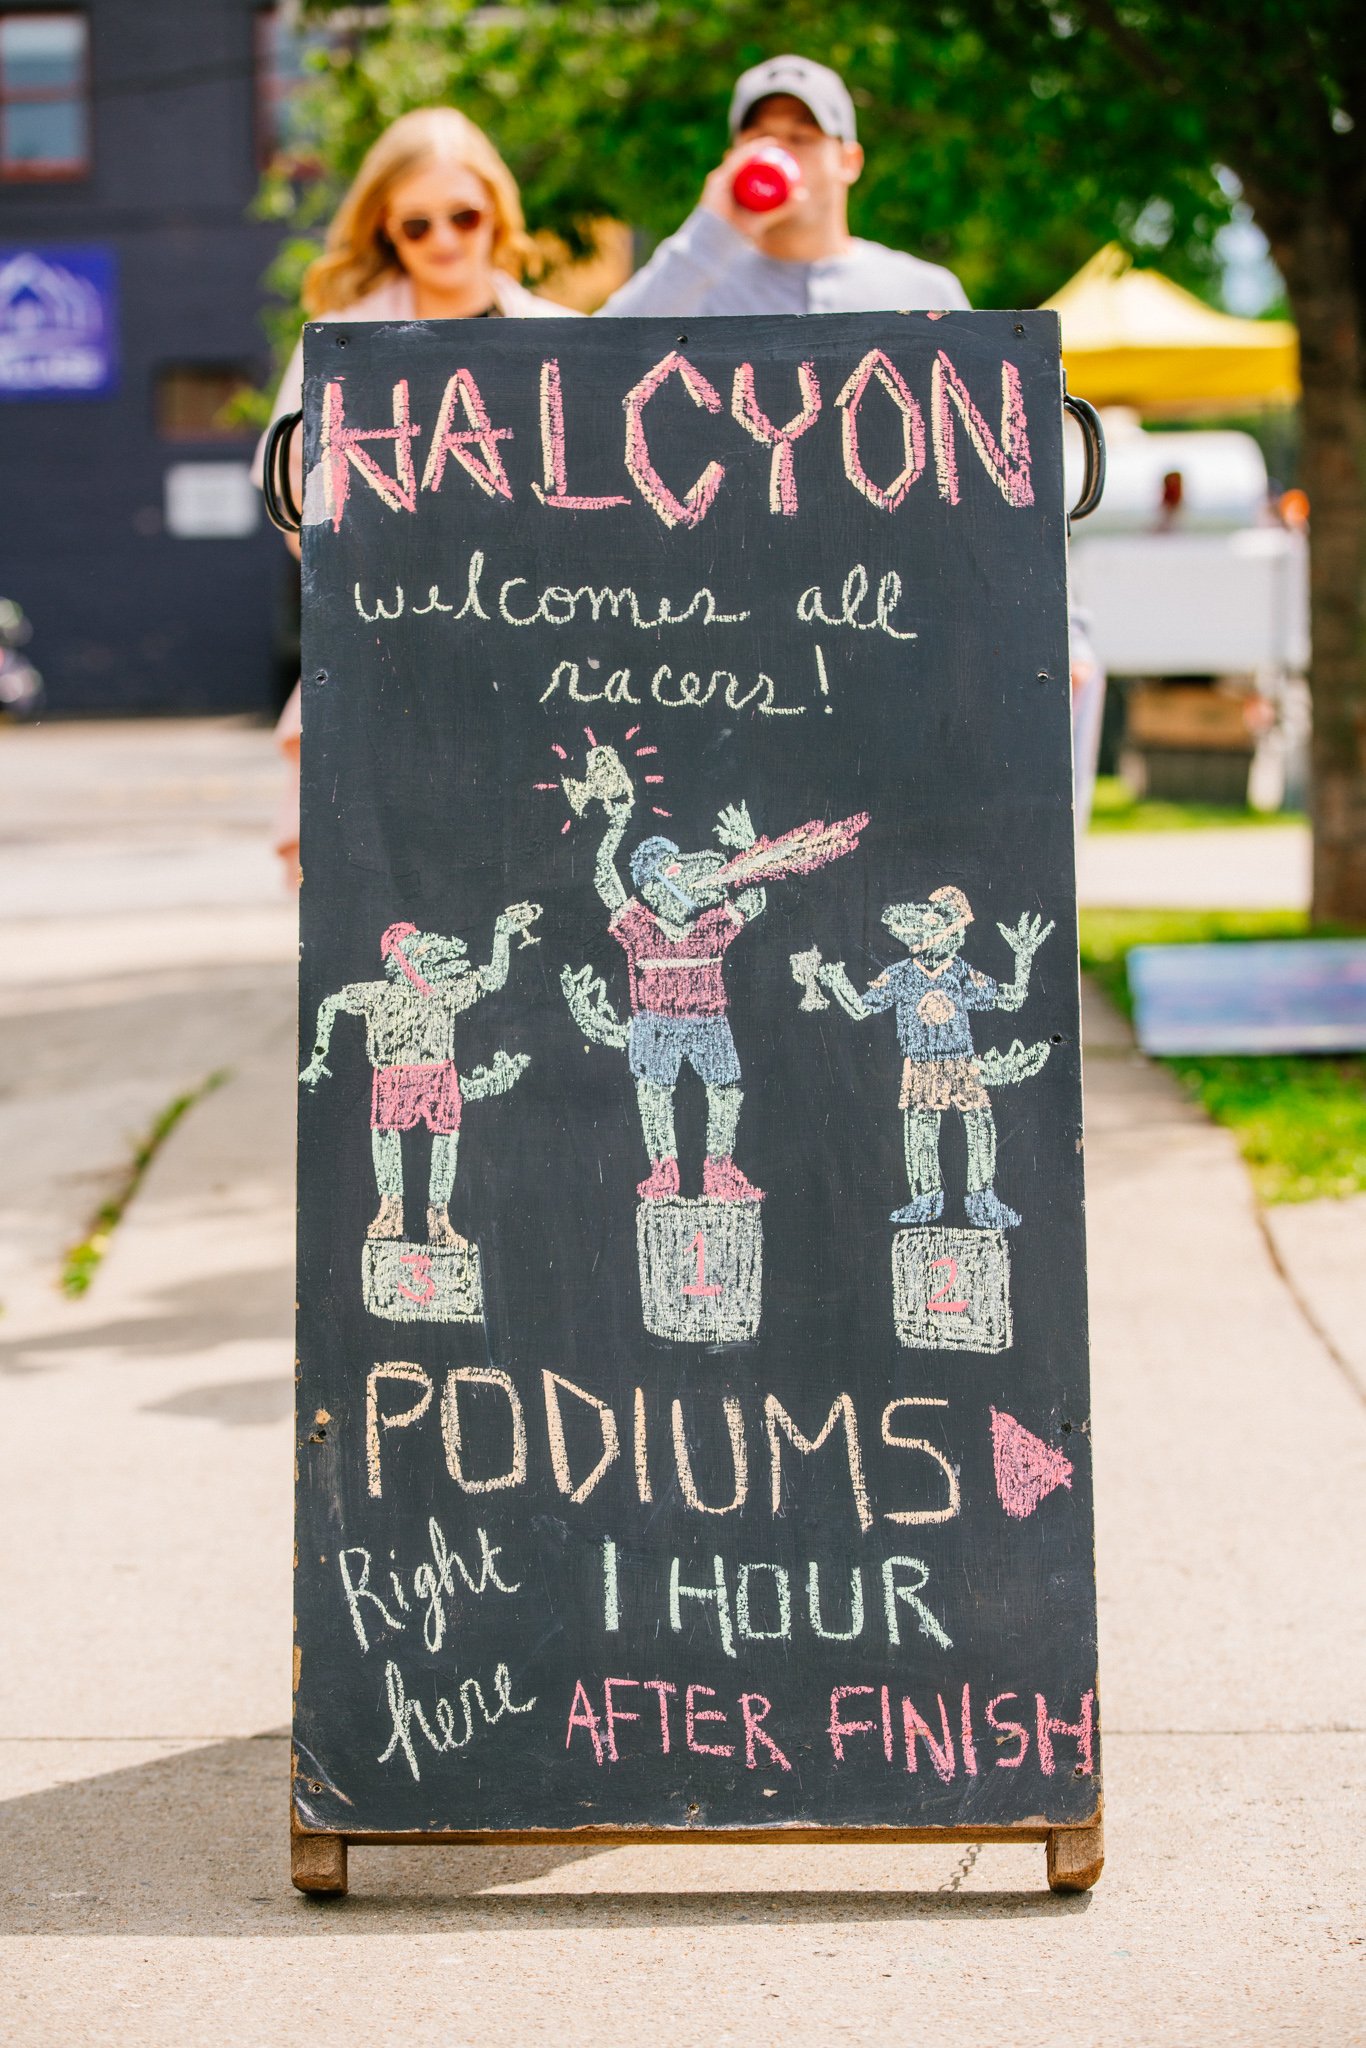 HALCYON
welcomes all
racers!
3 1 2
PODIUMS
Right 1 HOUR
here AFTER FINISH